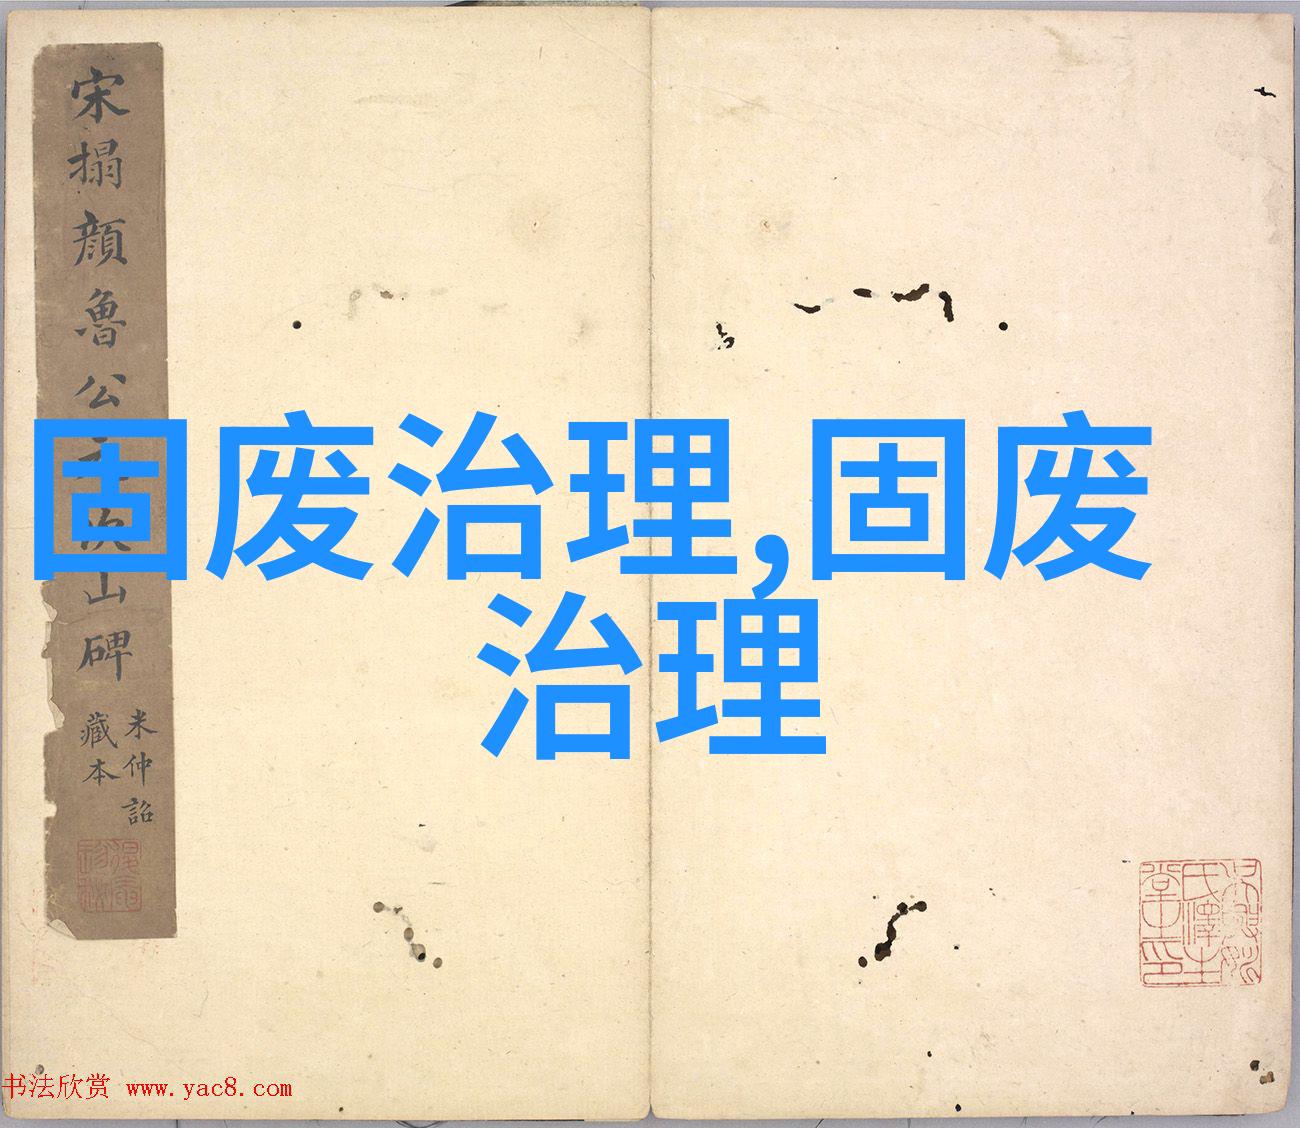 宋搨顏魯公元次山碑
米仲詔
藏本
固废治理,固废
治理
书法欣赏 www.yac8.com